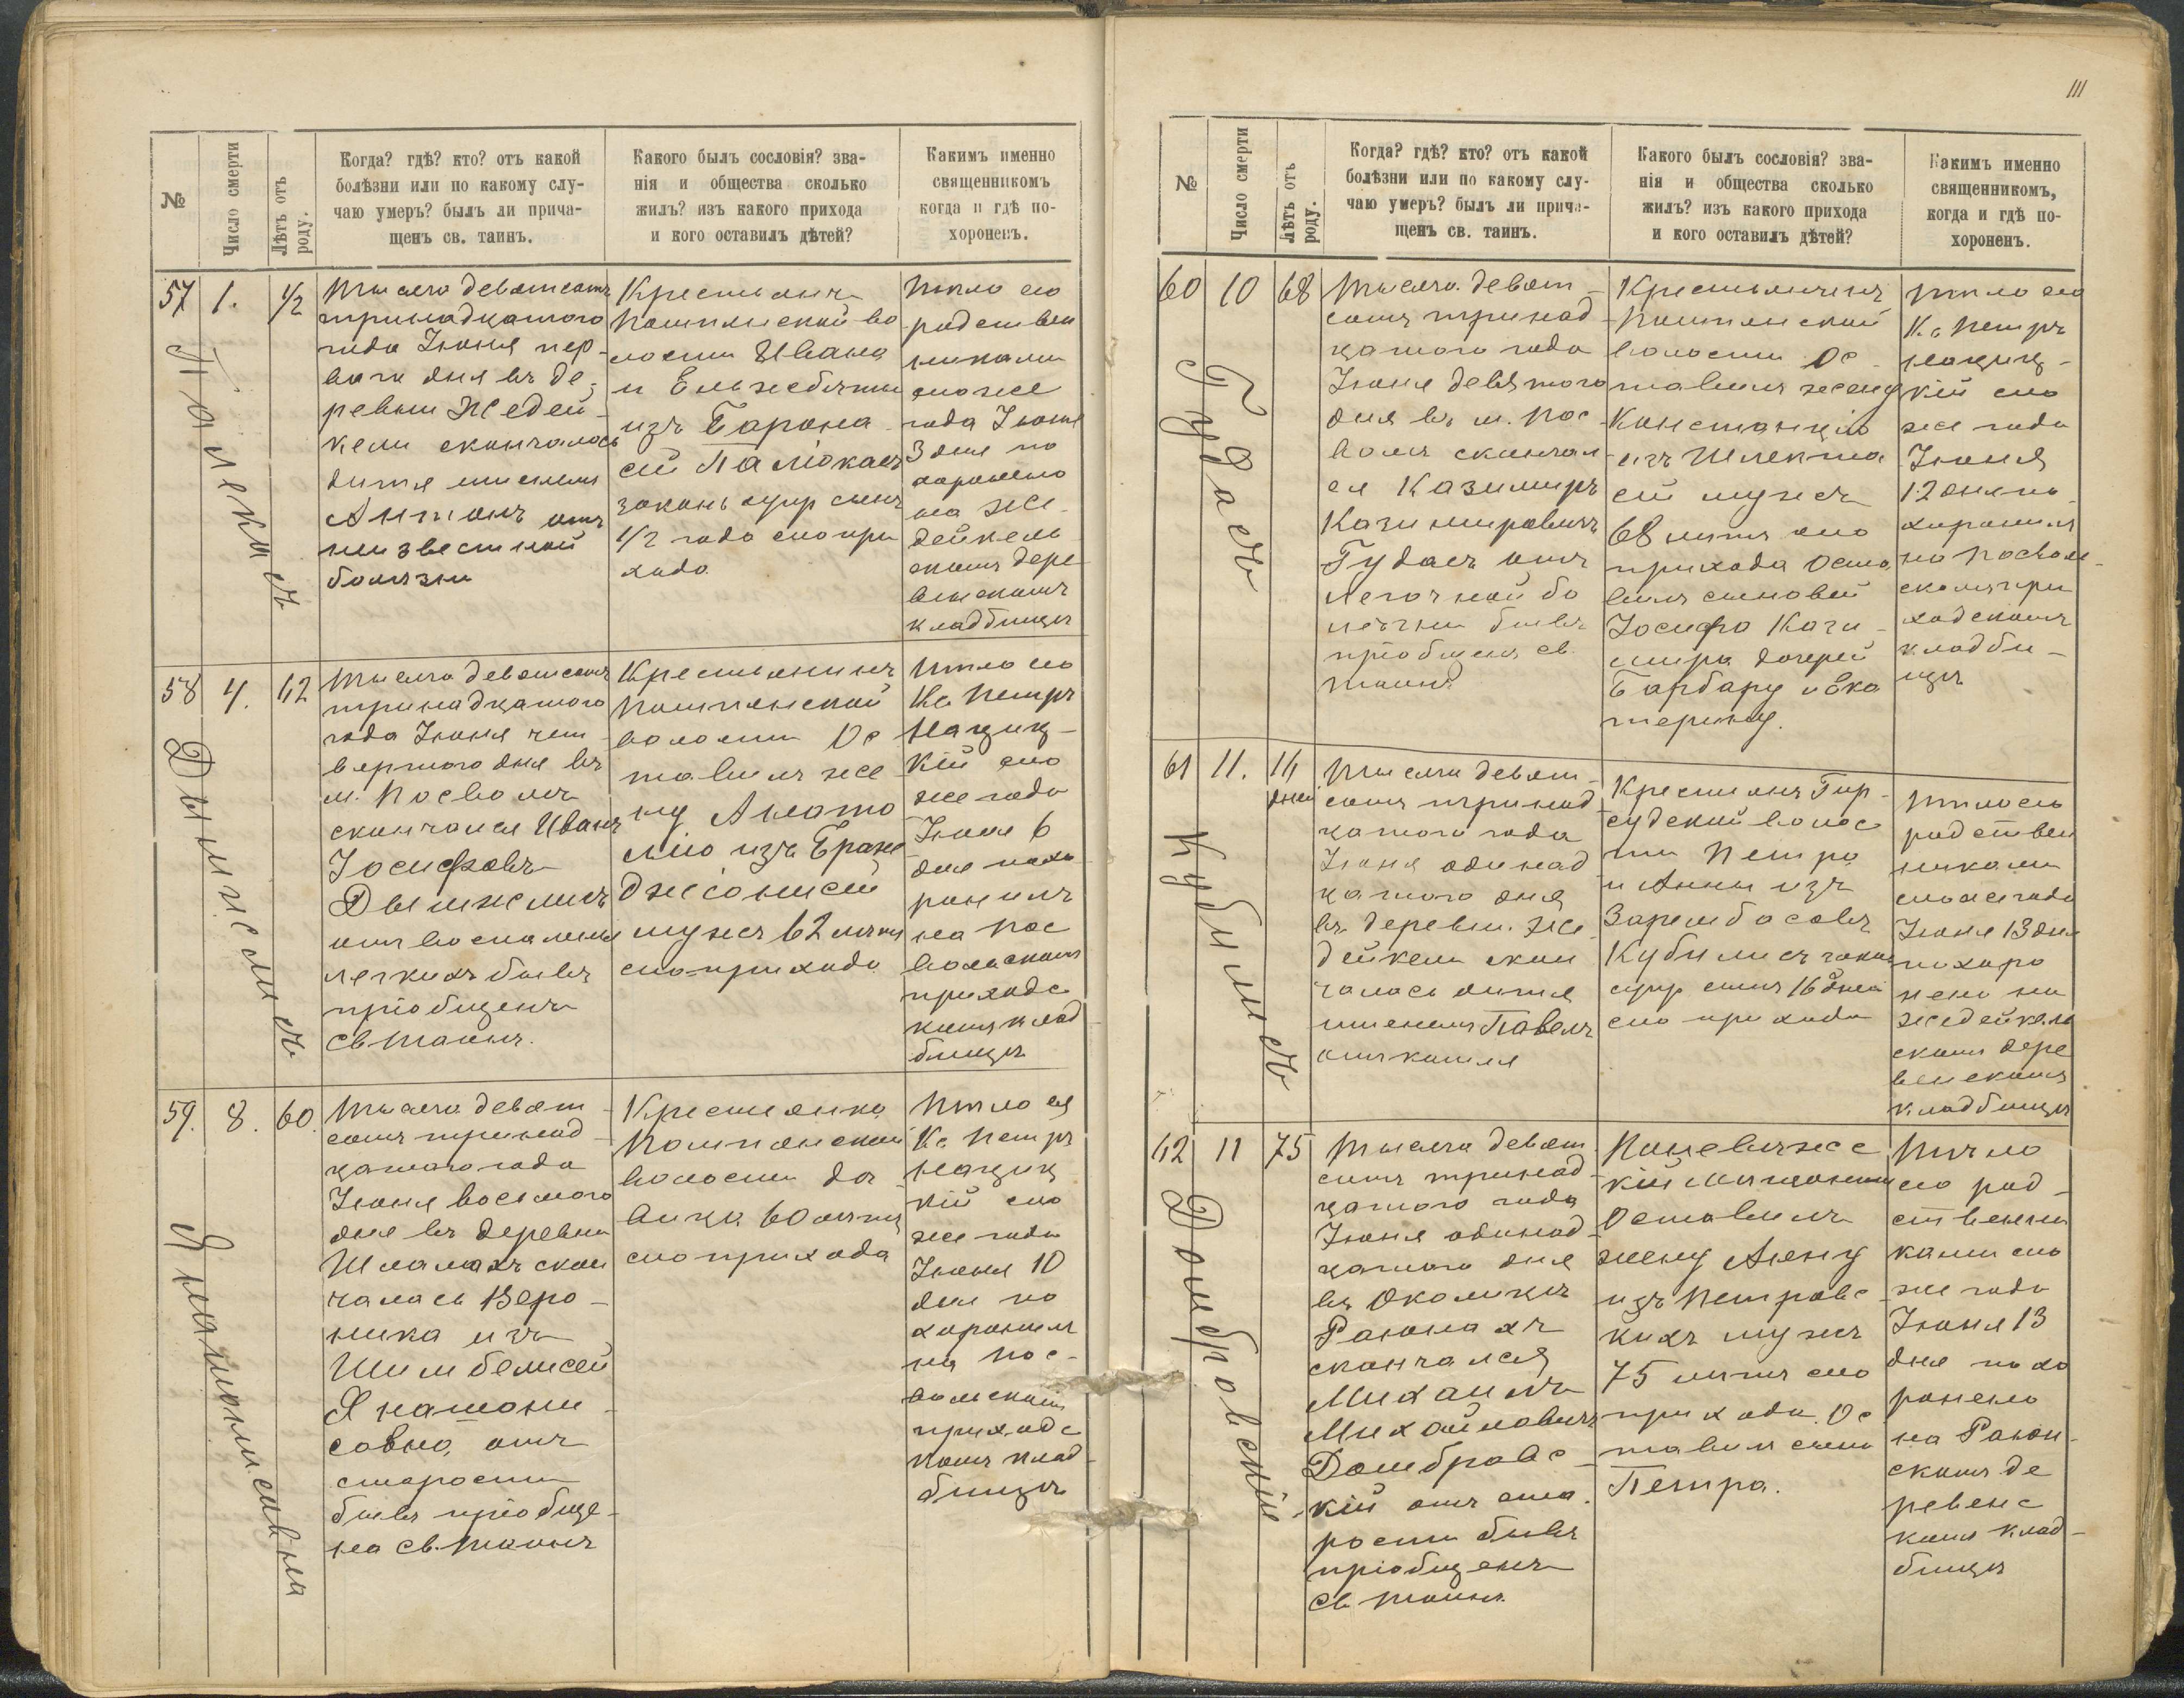 111
№
Число смерти
Лѣтъ отъ
роду.
Когда? гдѣ? кто? отъ какой
болѣзни или по какому слу-
чаю умеръ? былъ ли прича-
щенъ св. таинъ.
Какого былъ сословія? зва-
нія и общества сколько
жилъ? изъ какого прихода
и кого оставилъ дѣтей?
Какимъ именно
священникомъ
когда и гдѣ по-
хороненъ.
57
1.
1/2
Тысяча девятьсотъ
тринадцатого
года Іюня пер-
ваго дня въ де-
ревни Жедей-
кели скончалось
дитя именемъ
Антонъ отъ
неизвестной
болѣзни
Крестьянъ
Помпянской во
лости Ивана
и Ельжебѣты
изъ Барона
сѣй
законъ супр сынъ
1/2 года сего при
хода
Тѣло его
родствен
никами
сего же
года Іюня
3 дня по
хоронено
на Же-
дейкель
скомъ дере
венскомъ
кладбищѣ
58
4.
62
Дымжлисъ
Тысяча девятьсотъ
тринадцатого
года Іюня чет-
вертого дня въ
м. Посволѣ
скончался Иванъ
Іосифовъ
Дымжлисъ
отъ воспаленія
легкихъ бывъ
пріобщенъ
Св Таинъ.
Крестьянинъ
Помпянской
волости Ос
тавилъ же
ну Анато
лію изъ
мужъ 62 лѣтъ
сего прихода
Тѣло его
Кс Петръ
Нацицъ-
кій сего
же года
Іюня 6
дня похо
ронилъ
на Пос
вольскомъ
приходс
комъ клад
бищѣ
59.
8.
60.
Тысяча девят-
сотъ тринад-
цатого года
Іюня восьмого
дня въ деревни
скон
чалась Веро-
ника изъ
Янашони-
совна, отъ
старости
бывъ пріобще-
на Св. Таинъ
Крестьянка
Помпянской
волости дѣ-
вица 60 лѣтъ
сего прихода
Тѣло ея
Кс Петръ
Нациц
кій сего
же года
Іюня 10
дня по
хоронилъ
на Пос-
вольскомъ
приходс
комъ клад-
бищѣ
№
Число смерти
Лѣтъ отъ
роду.
Когда? гдѣ? кто? отъ какой
болѣзни или по какому слу-
чаю умеръ? былъ ли прича-
щенъ св. таинъ.
Какого былъ сословія? зва-
нія и общества сколько
жилъ? изъ какого прихода
и кого оставилъ дѣтей?
Какимъ именно
священникомъ,
когда и гдѣ по-
хороненъ.
60
10
68
Гудасъ
Тысяча девят-
сотъ тринад
цатого года
Іюня девятого
дня въ м. Пос-
волѣ скончал
ся Казимиръ
Казимировичъ
Гудасъ отъ
легочной бо
лѣзни бывъ
пріобщенъ св.
Таинъ.
Крестьянинъ
Помпянской
волости Ос
тавилъ жену
Констанцію
изъ Шлекта
сѣй мужъ
68 лѣтъ сего
прихода Оста
вилъ сыновей
Іосифа Кази-
мира дочерей
Барбару и Ека
терину.
Тѣло его
Кс Петръ
Нациц-
кій сего
же года
Іюня
12 дня по
хоронилъ
на Посволь-
скомъ при
ходскомъ
кладби-
щѣ
61
11.
16
дней
Кубилисъ
Тысяча девят-
сотъ тринад
цатого года
Іюня одинад
цатого дня
въ деревни Же
дейкели скон
чалось дитя
именемъ Павелъ
отъ кашля
Крестьянъ Гир-
судской волос
ти Петра
и Анны изъ
Зарембосовъ
Кубилисъ закон
супр сынъ 16 дней
сего прихода
Тѣло его
родствен
никами
сего же года
Іюня 13 дня
похоро
нено на
Жедейкель
скомъ дере
венскомъ
кладбищѣ
62
11
75
Домбровскій
Тысяча девят
сотъ тринад-
цатого года
Іюня одинад-
цатого дня
въ Околицѣ
Раюнахъ
скончался
Михаилъ
Михайловичъ
Домбровс-
кій отъ ста.
рости бывъ
пріобщенъ
Св Таинъ.
Поневѣжс
кій мѣщанинъ
Оставилъ
жену Анну
изъ Петровс
кихъ мужъ
75 лѣтъ сего
прихода. Ос
тавилъ сына
Петра.
Тѣло
его род-
ственни
ками сего
же года
Іюня 13
дня похо
ронено
на Раюн-
скомъ де
ревенс
комъ клад-
бищѣ